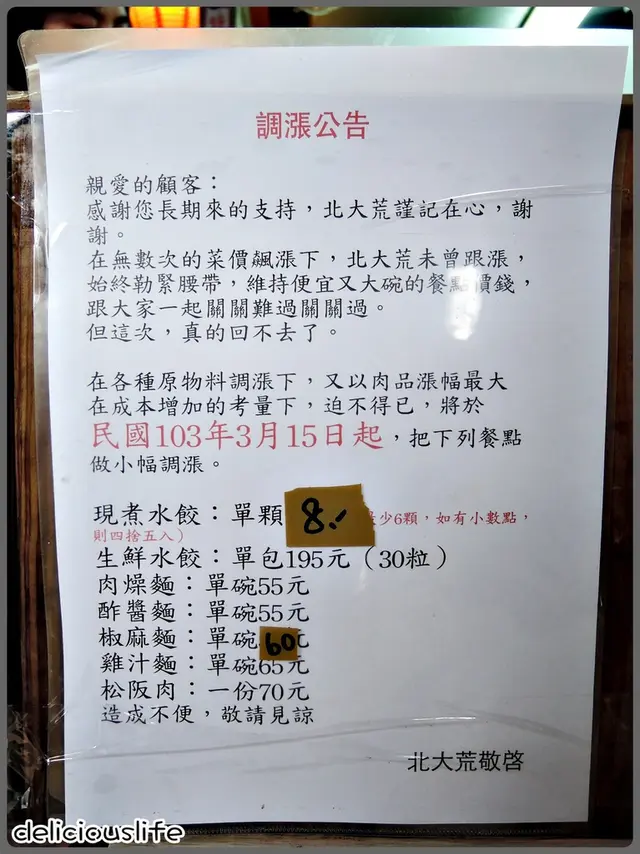 調漲公告
親愛的顧客：
感謝您長期來的支持，北大荒謹記在心，謝
謝。
在無數次的菜價飆漲下，北大荒未曾跟漲，
始終勒緊腰帶，維持便宜又大碗的餐點價錢，
跟大家一起關關難過關關過。
但這次，真的回不去了。
在各種原物料調漲下，又以肉品漲幅最大
在成本增加的考量下，迫不得已，將於
民國103年3月15日起，把下列餐點
做小幅調漲。
現煮水餃：單顆 8.- 少6顆，如有小數點，
則四捨五入）
生鮮水餃：單包195元（30粒）
肉燥麵：單碗55元
酢醬麵：單碗55元
椒麻麵：單碗60元
雞汁麵：單碗65元
松阪肉：一份70元
造成不便，敬請見諒
北大荒敬啓
deliciouslife